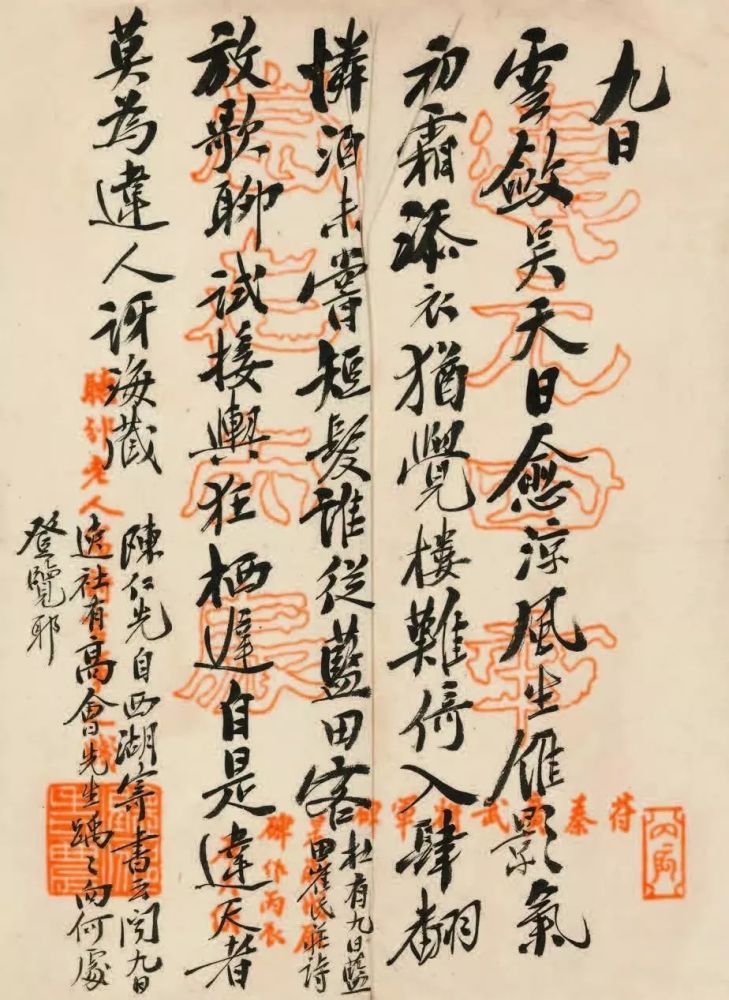 九日
雲斂吳天日愈涼風生雁影氣
初霜添衣猶覺樓難倚入肆翻
憐酒未嘗短髮誰從藍田客
杜有九日藍
田崔氏莊詩
放歌聊試接輿狂栖遲自是違天者
莫為違人訝海藏
陳仁先自西湖寄書云聞九日
逸社有高會先生踽〻向何處
登覽耶
建元四年
歲在丙辰